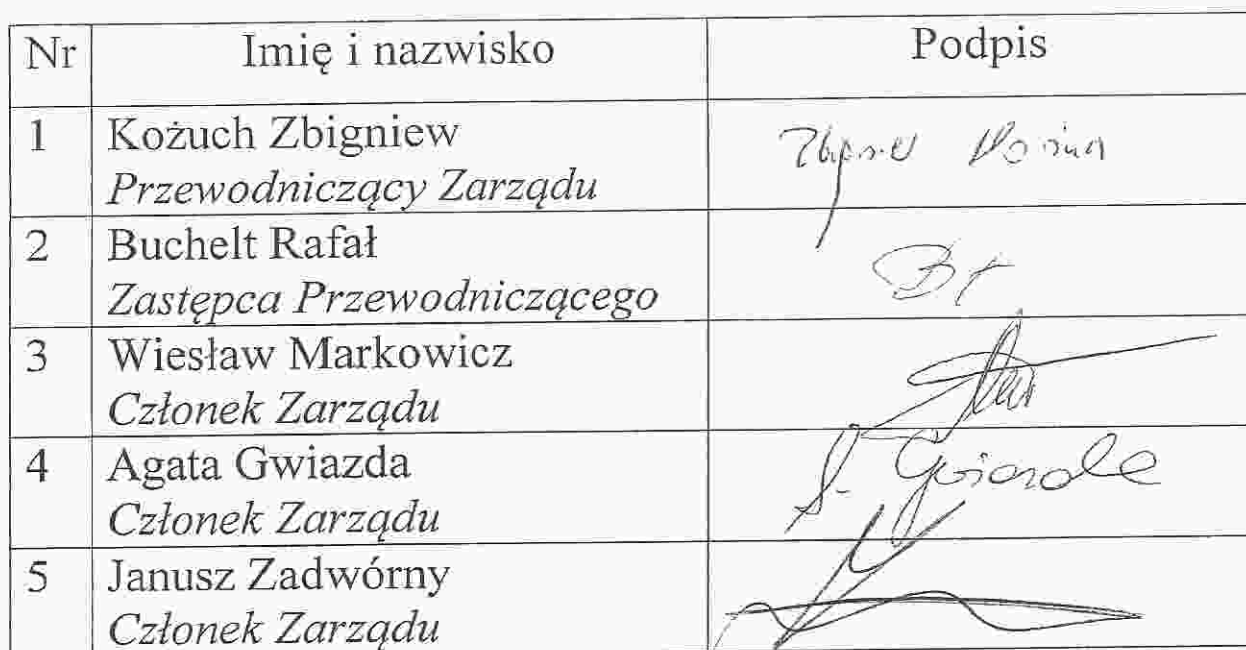 Nr Imię i nazwisko Podpis
1 Kożuch Zbigniew
Przewodniczący Zarządu
2 Buchelt Rafał
Zastępca Przewodniczącego
3 Wiesław Markowicz
Członek Zarządu
4 Agata Gwiazda
Członek Zarządu
5 Janusz Zadwórny
Członek Zarządu